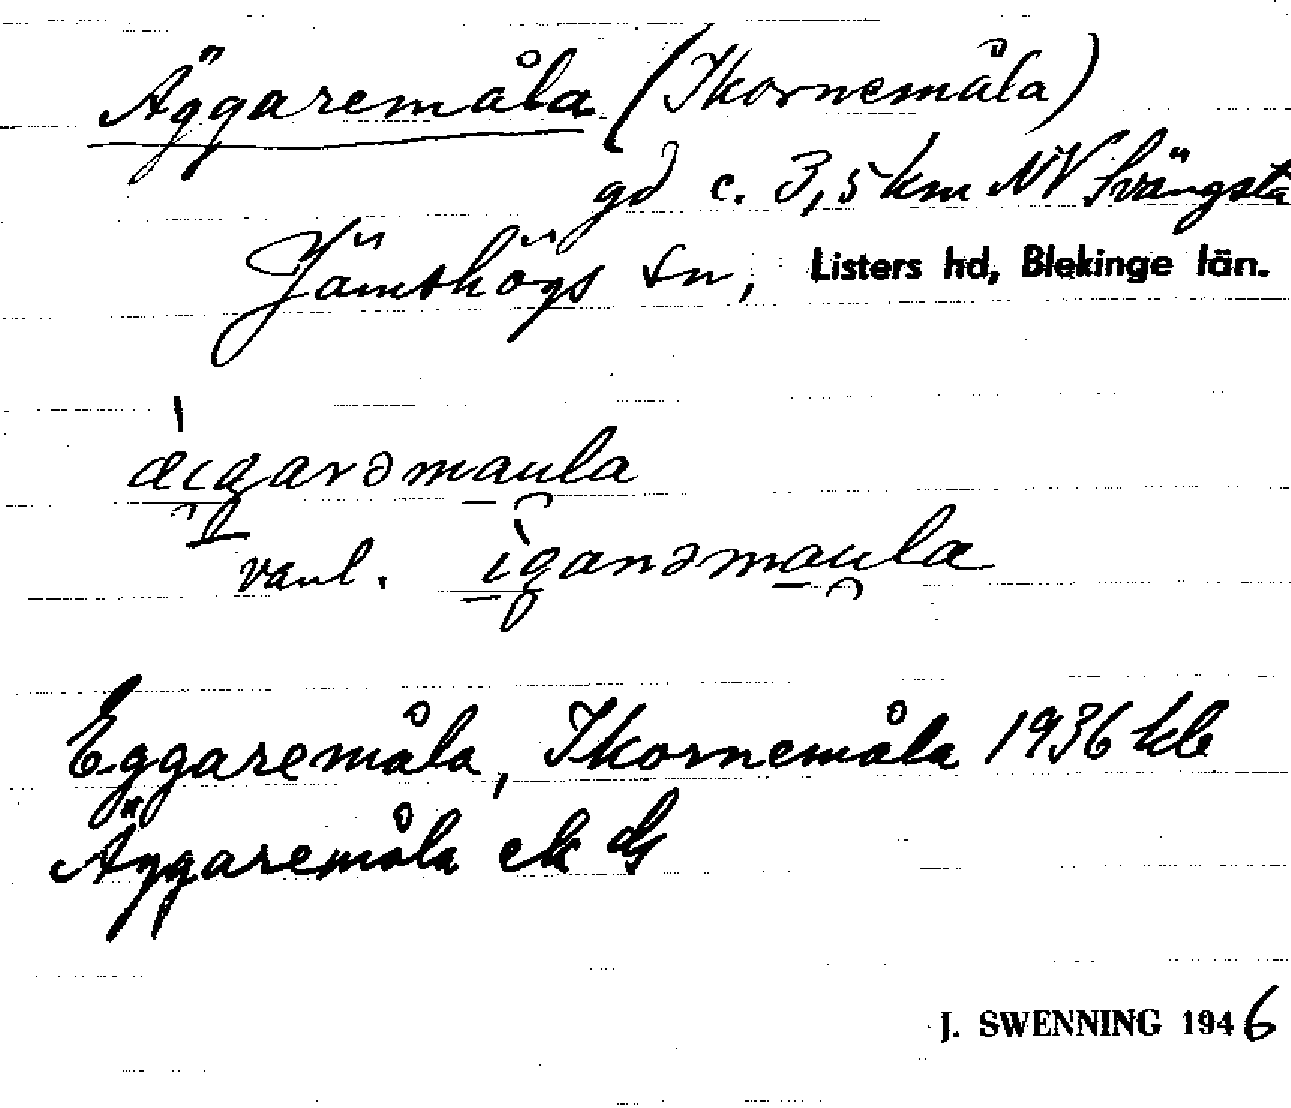 Äggaremåla (Ikornemåla)
gd c. 3,5 km NV Svängsta
Jämshögs sn, Listers hd, Blekinge län.
vanl.
Eggaremåla, Ikornemåla 1936 kb
Äggaremåla ek
J. SWENNING 1946